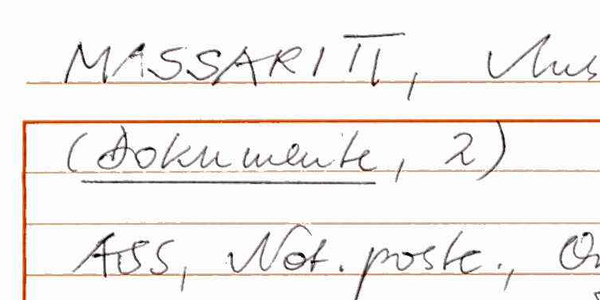 MASSARITTI,
(Dokumente, 2)
ASS, Not. poste.,